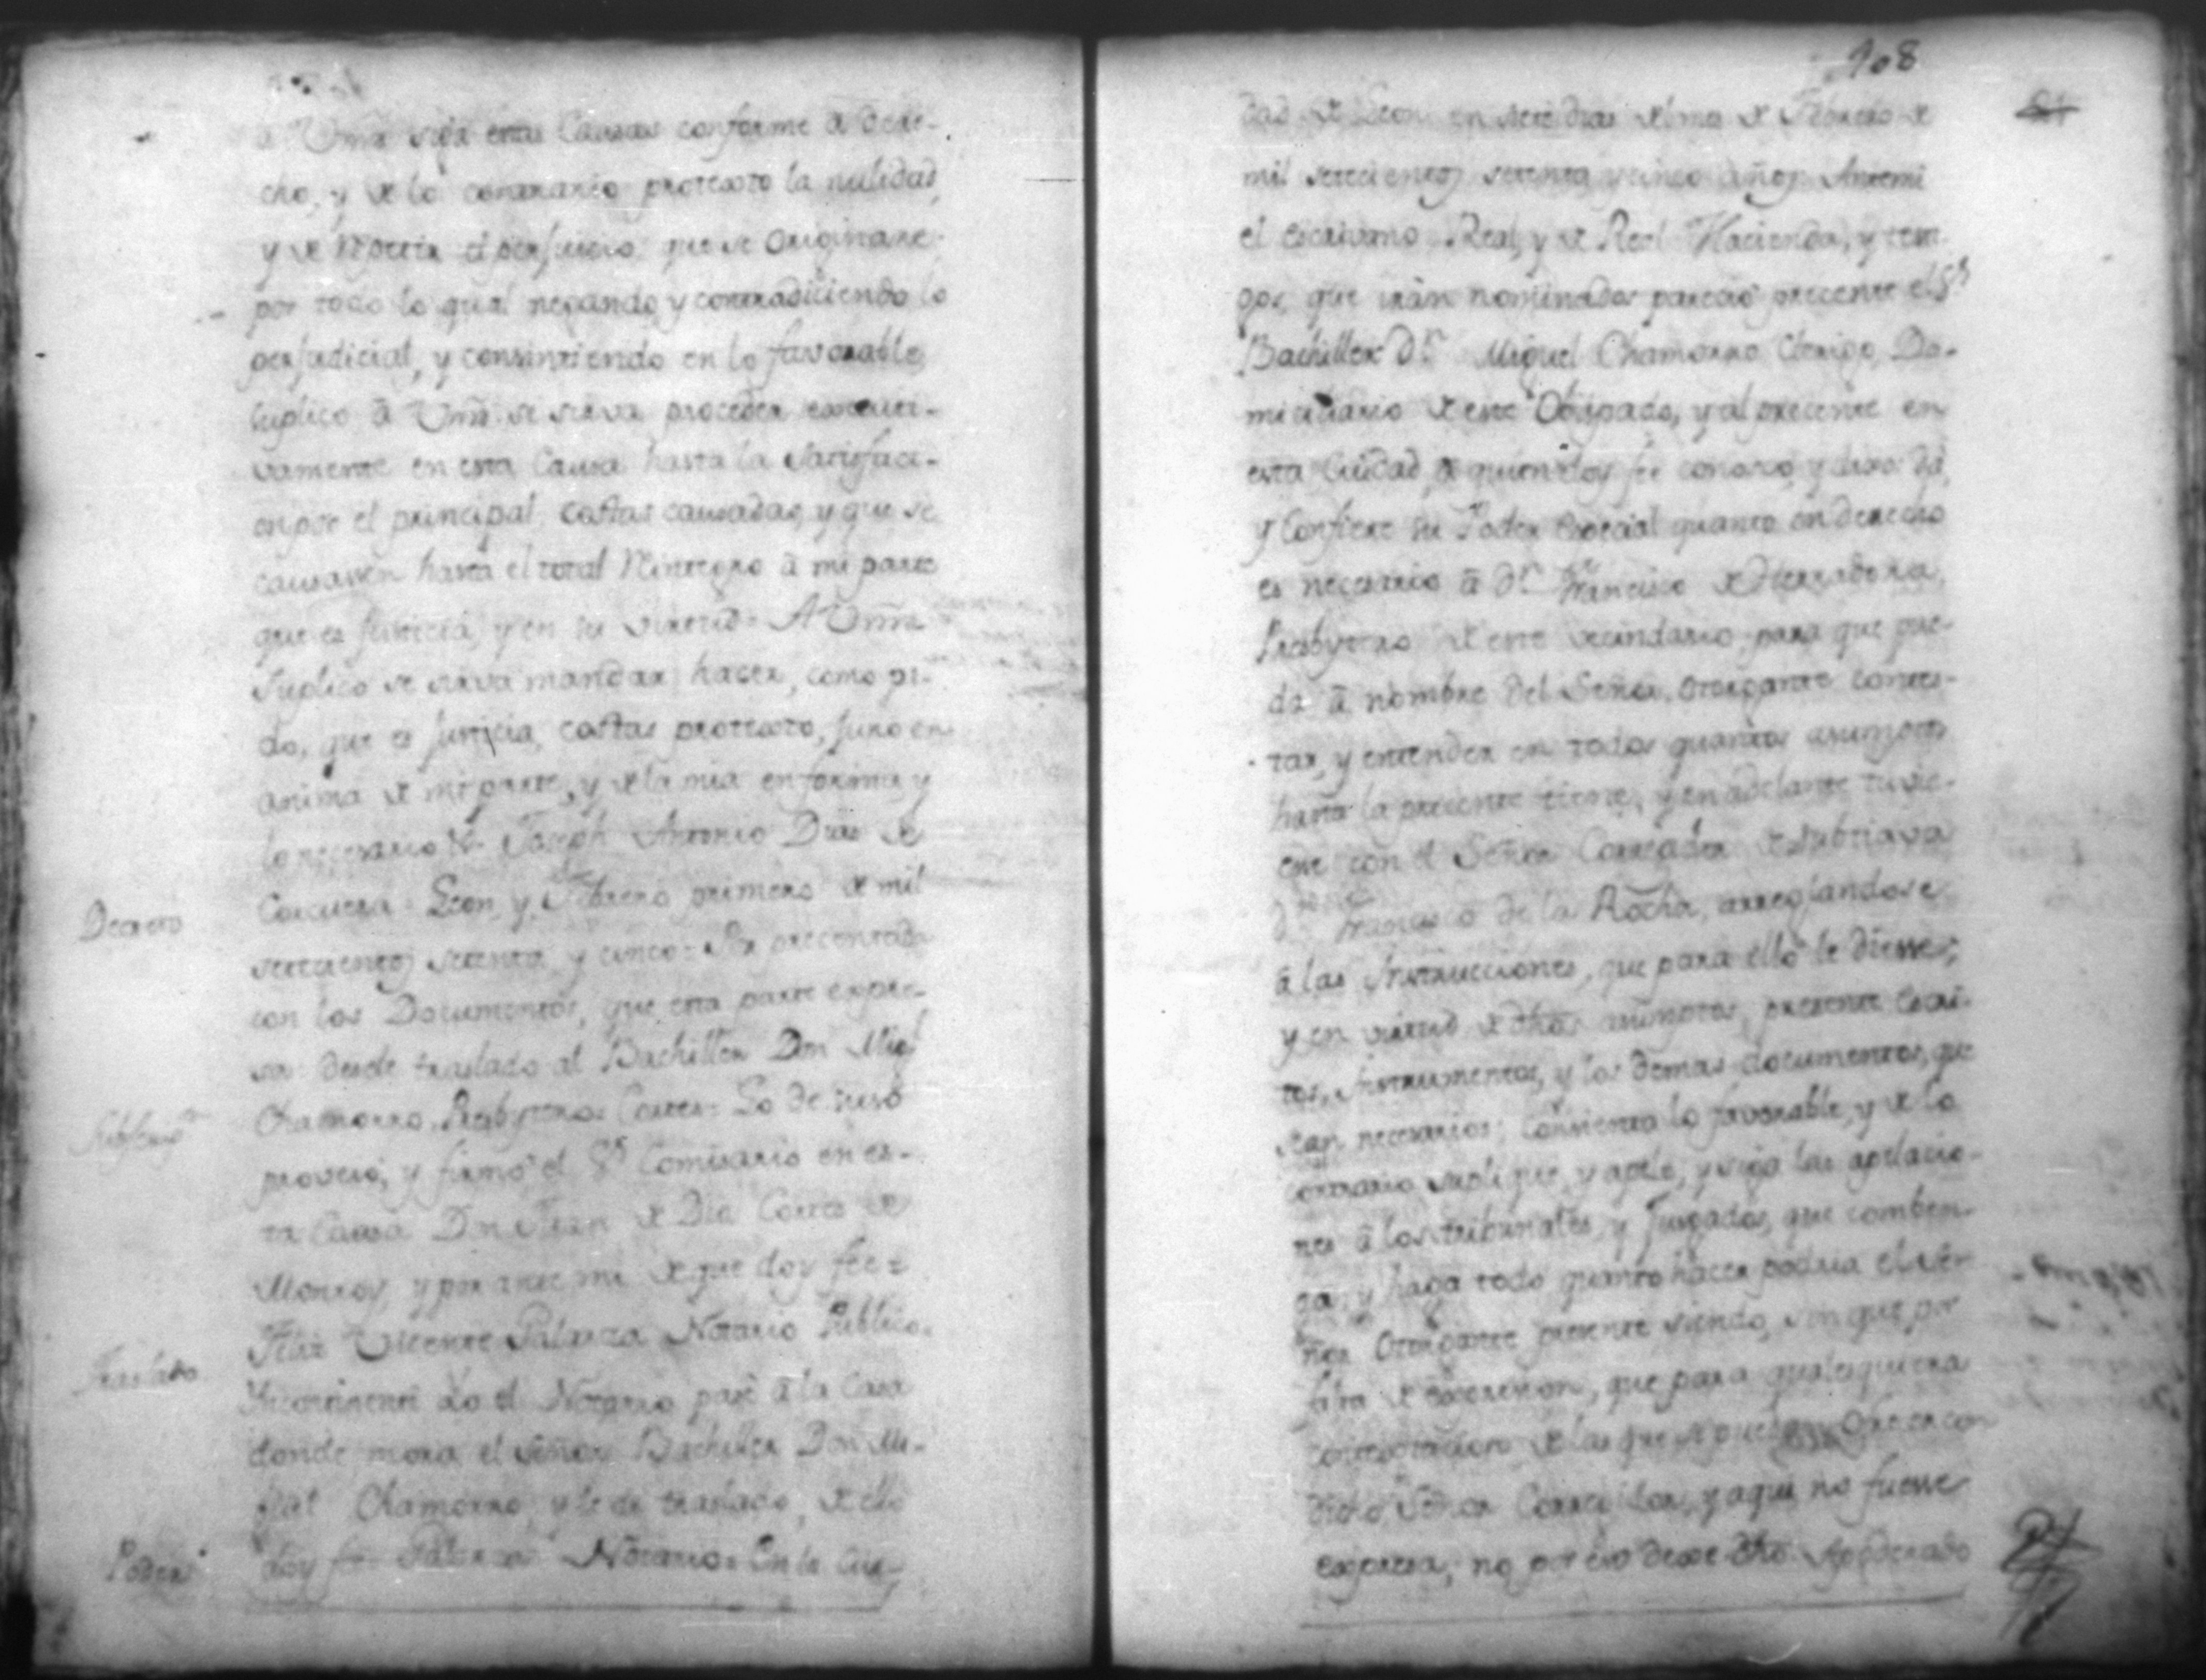 â Vmê siga estas Causas conforme â dere-
cho, y de lo contrario protesto la nulidad,
y de repetir el perjuicio que se originare
por todo lo qual negando, y contradiciendo lo
perjudicial, y consintiendo en lo favorable
suplico â Vmê. se sirva proceder executi-
vamente en esta Causa hasta la satisfaci-
on por el principal, costas causadas, y que se
causassen hasta el total Reintegro â mi parte
que es Justicia, y en su virtud = A Vmê
Suplico se sirva mandar hacer, como pi-
do, que es Justicia, costas protesto, juro en
anima de mi parte, y de la mia en forma, y
lo necesario &. Joseph Antonio Dias de
Decreto
Corcuera = Leon, y Febrero primero de mil
setecientos setenta, y cinco = Por presentada
con los Documentos, que esta parte expre-
sa: desele traslado al Bachiller Don Migl
Chamorro, Presbytero = Cortes = Lo de suso
proveió, y firmó el Sr. Comisario en es-
ta Causa Don Juan de Dîa Cortes de
Monroy, y por ante mi de que doy feê =
Felix Vicente Palanza Notario Publico =
Traslado
Incontinenti Yo el Notario pasê â la Casa
donde mora el Señor Bachiller Don Mi-
guel Chamorro, y le di traslado, de ello
Poder
doy fee = Palanza Notario = En la Ciu-
108
dad de Leon en siete dias del mes de Febrero de
mil setecientos setenta y cinco años. Antemi
el escrivano Real, y de Real Hacienda, y testi-
gos, que irân nominados pareciô presente el Sr.
Bachiller Dn. Miguel Chamorro Clerigo, Do-
miciliario de este Obispado, y al presente en
esta Ciudad, â quien doy feê conosco, y dixo: dâ,
y Confiere su Poder especial quanto en derecho
es necesario â Dn. Francisco de
Presbytero de este vecindario, para que pue-
da â nombre del Señor Otorgante contes-
tar, y entender en todos quantos asumptos
hasta la presente tiene, y en adelante tuvie-
re con el Señor Corregidor de Subtiava
Dn. Francisco de la Rocha, arreglandose
â las Instrucciones, que para ello le diesse;
y en virtud de dhos asumptos, presente Escri-
tos, Instrumentos, y los demas documentos, que
sean necesarios: Consienta lo favorable, y de lo
contrario suplique, y apele, y siga las apelacio-
nes â los tribunales, y Jusgados, que comben-
gan, y haga todo quanto hacer podria el Se-
ñor Otorgante presente siendo, sin que por
falta de expression, que para qualesquiera
contestacion de las que se puedan ofrecer con
dicho Señor Corregidor, y aqui no fuesse
expresa, no por eso dexe dho Apoderado